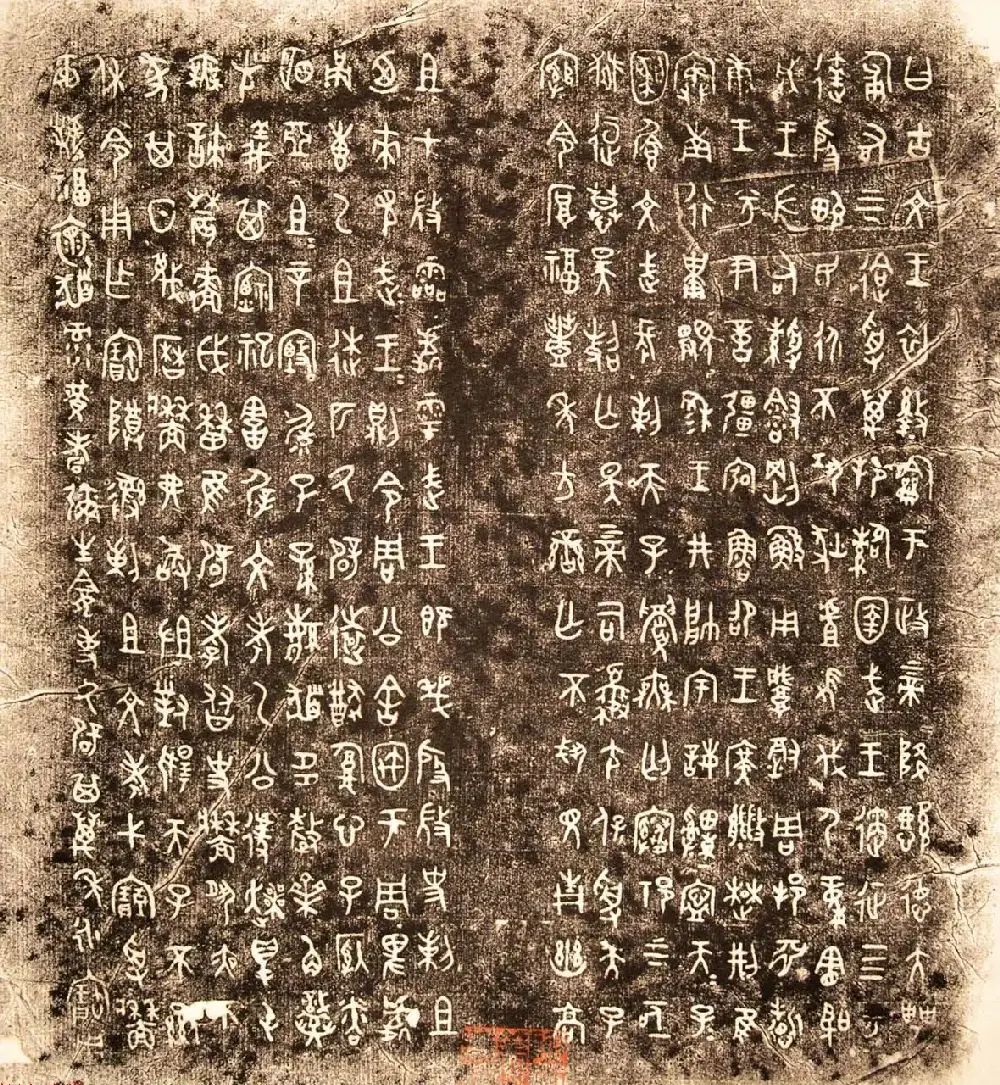 曰古文王初盭龢于政上帝降懿德大甹
匍有上下迨受萬邦䚄圉武王遹征四方
達殷畯民永不巩狄虘髟伐尸童憲聖
成王左右綬㪤剛鯀用肇徹周邦淵哲
康王兮尹億疆宏魯卲王廣能楚荊隹
寏南行祗覭穆王井帥宇誨申寧天子天子
圛饡文武長剌天子眉無匄褰祁上下
亟獄逗慕昊照亡斁上帝司夒尢保受天子
綰令厚福豐年方蠻亡不𢦚見青幽高
且才微霝處雩武王既𢦏殷微史剌且
廼來見武王武王則令周公舍㝢于周卑處
甬叀乙且逨匹氒辟遠猷腹心子納粦
明亞且且辛甄毓子孫繁祓多釐齊角熾
光義其禋祀㝬遲文考乙公遽爽得屯
無諫農嗇戉曆隹辟孝友史牆夙夜不
彖其日蔑曆牆弗敢沮對揚天子不顯
休令用乍寶尊彝剌且文考弋寶受牆
爾䵼福懷祓彔黃耇彌生龕事氒辟其萬年永寶用